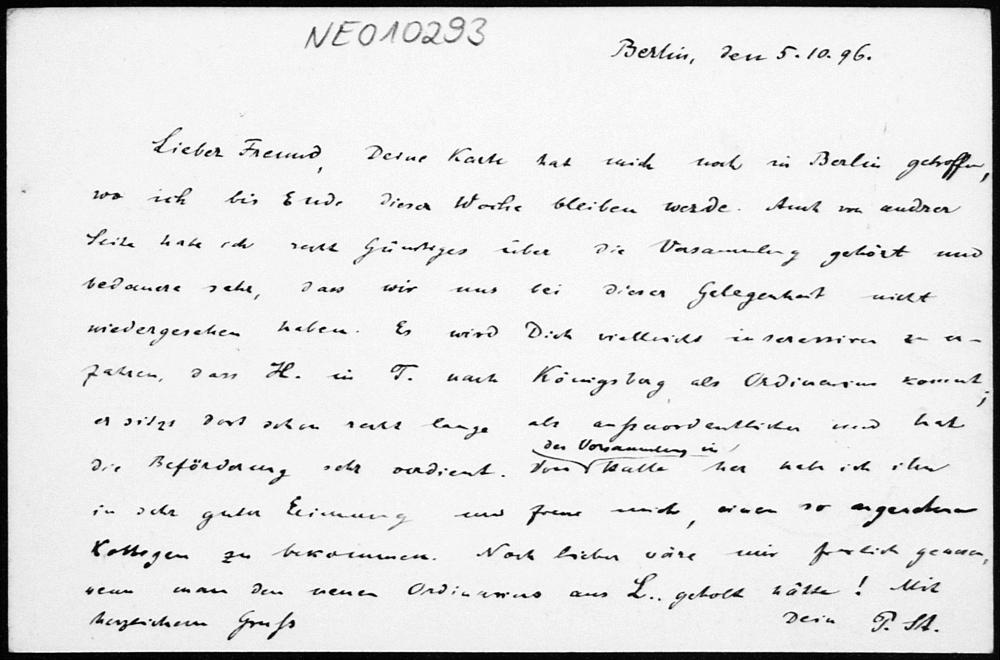 NE010293
Berlin, den 5.10.96.
Lieber Freund, Deine Karte hat mich noch in Berlin getroffen,
wo ich bis Ende dieser Woche bleiben werde. Auch von andrer
Seite habe ich recht Günstiges über die Versammlung gehört und
bedauere sehr, dass wir uns bei dieser Gelegenheit nicht
wiedergesehen haben. Es wird Dich vielleicht interessiren zu er-
fahren, dass H. in T. nach Königsberg als Ordinarius kommt;
er sitzt dort schon recht lange als ausserordentlicher und hat
die Beförderung sehr verdient. Von
der Versammlung in
Halle her habe ich ihn
in sehr guter Erinnerung und freue mich, einen so angenehmen
Kollegen zu bekommen. Noch lieber wäre mir freilich gewesen,
wenn man den neuen Ordinarius aus L.. geholt hätte! Mit
herzlichem Gruss Dein P. St.